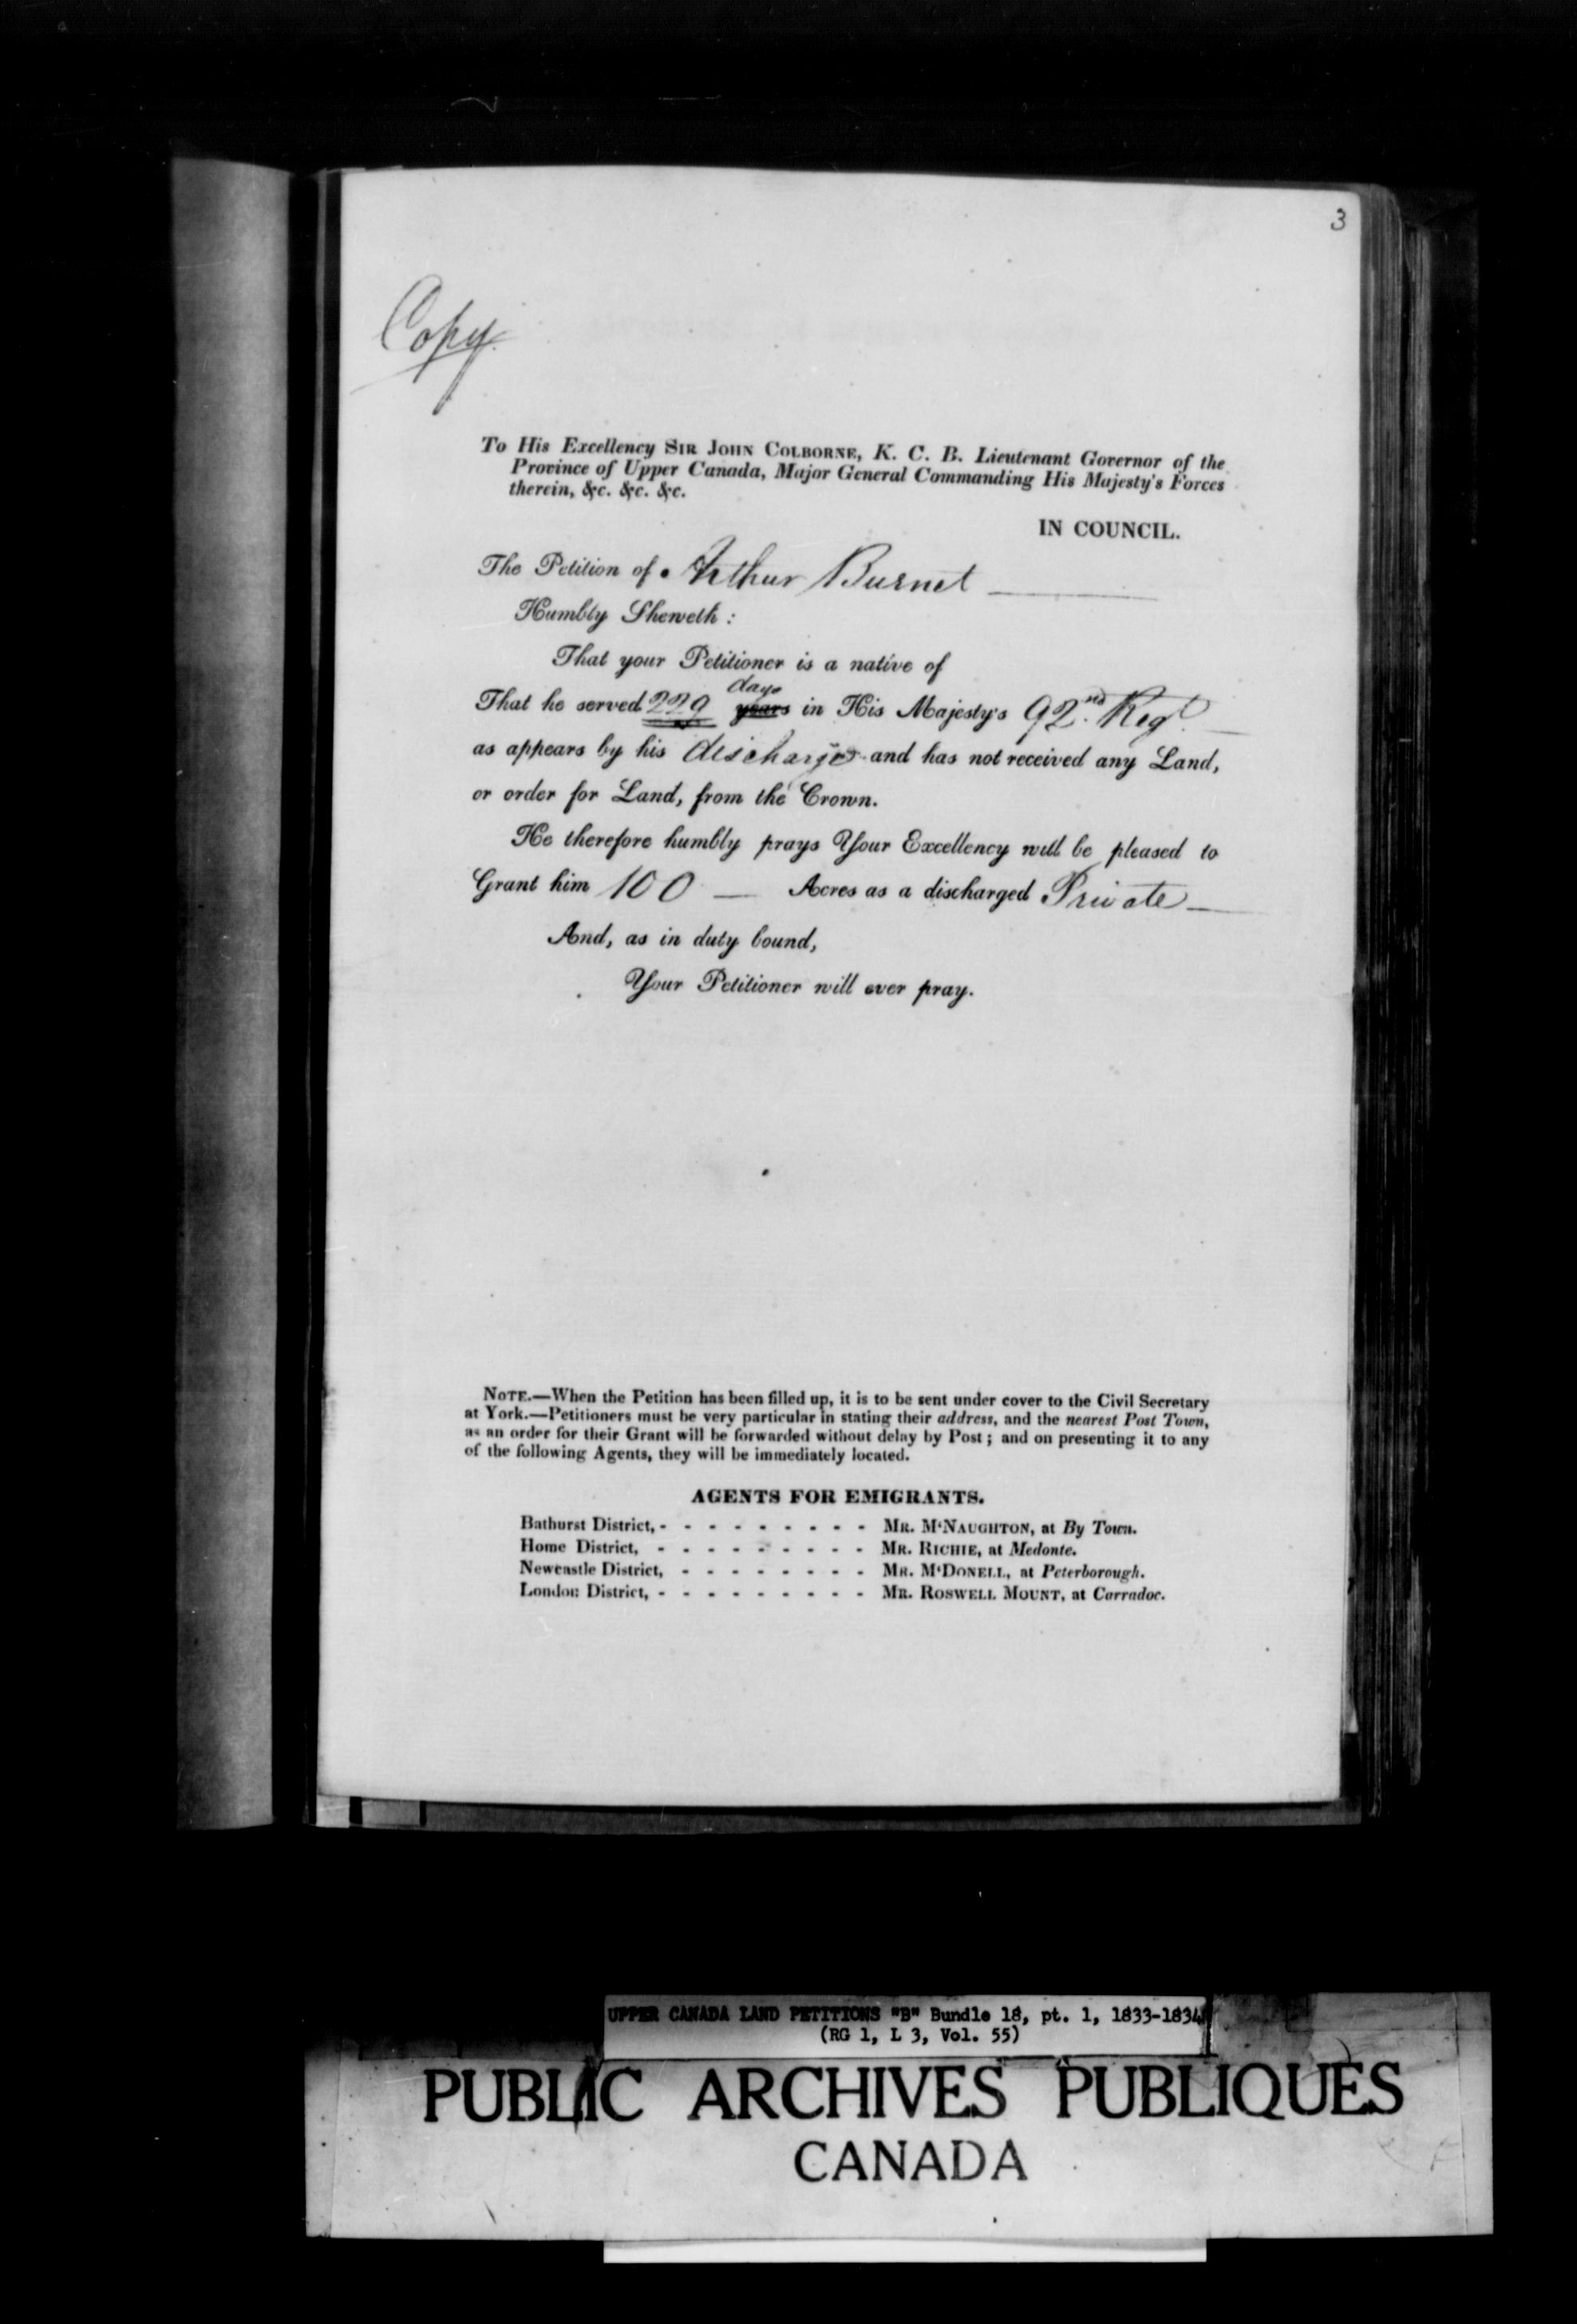 3
Copy
To His Excellency SIR JOHN COLBORNE, K. C. B. Lieutenant Governor of the
Province of Upper Canada, Major General Commanding His Majesty's Forces
therein, &c. &c. &c.
IN COUNCIL.
The Petition of Arthur Burnet
Humbly Sheweth :
That your Petitioner is a native of
days
That he served 229 years in His Majesty's 92nd Regt
as appears by his discharge and has not received any Land,
or order for Land, from the Crown.
He therefore humbly prays Your Excellency will be pleased to
Grant him 100 — Acres as a discharged Private
And, as in duty bound,
Your Petitioner will ever pray.
NOTE.—When the Petition has been filled up, it is to be sent under cover to the Civil Secretary
at York.—Petitioners must be very particular in stating their address, and the nearest Post Town,
as an order for their Grant will be forwarded without delay by Post ; and on presenting it to any
of the following Agents, they will be immediately located.
AGENTS FOR EMIGRANTS.
Bathurst District, - - - - - - - - - MR. M'NAUGHTON, at By Town.
Home District, - - - - - - - - - MR. RICHIE, at Medonte.
Newcastle District, - - - - - - - - MR. M'DONELL, at Peterborough.
London District, - - - - - - - - - MR. ROSWELL MOUNT, at Carradoc.
UPPER CANADA LAND PETITIONS "B" Bundle 18, pt. 1, 1833-1834
(RG 1, L 3, Vol. 55)
PUBLIC ARCHIVES PUBLIQUES
CANADA